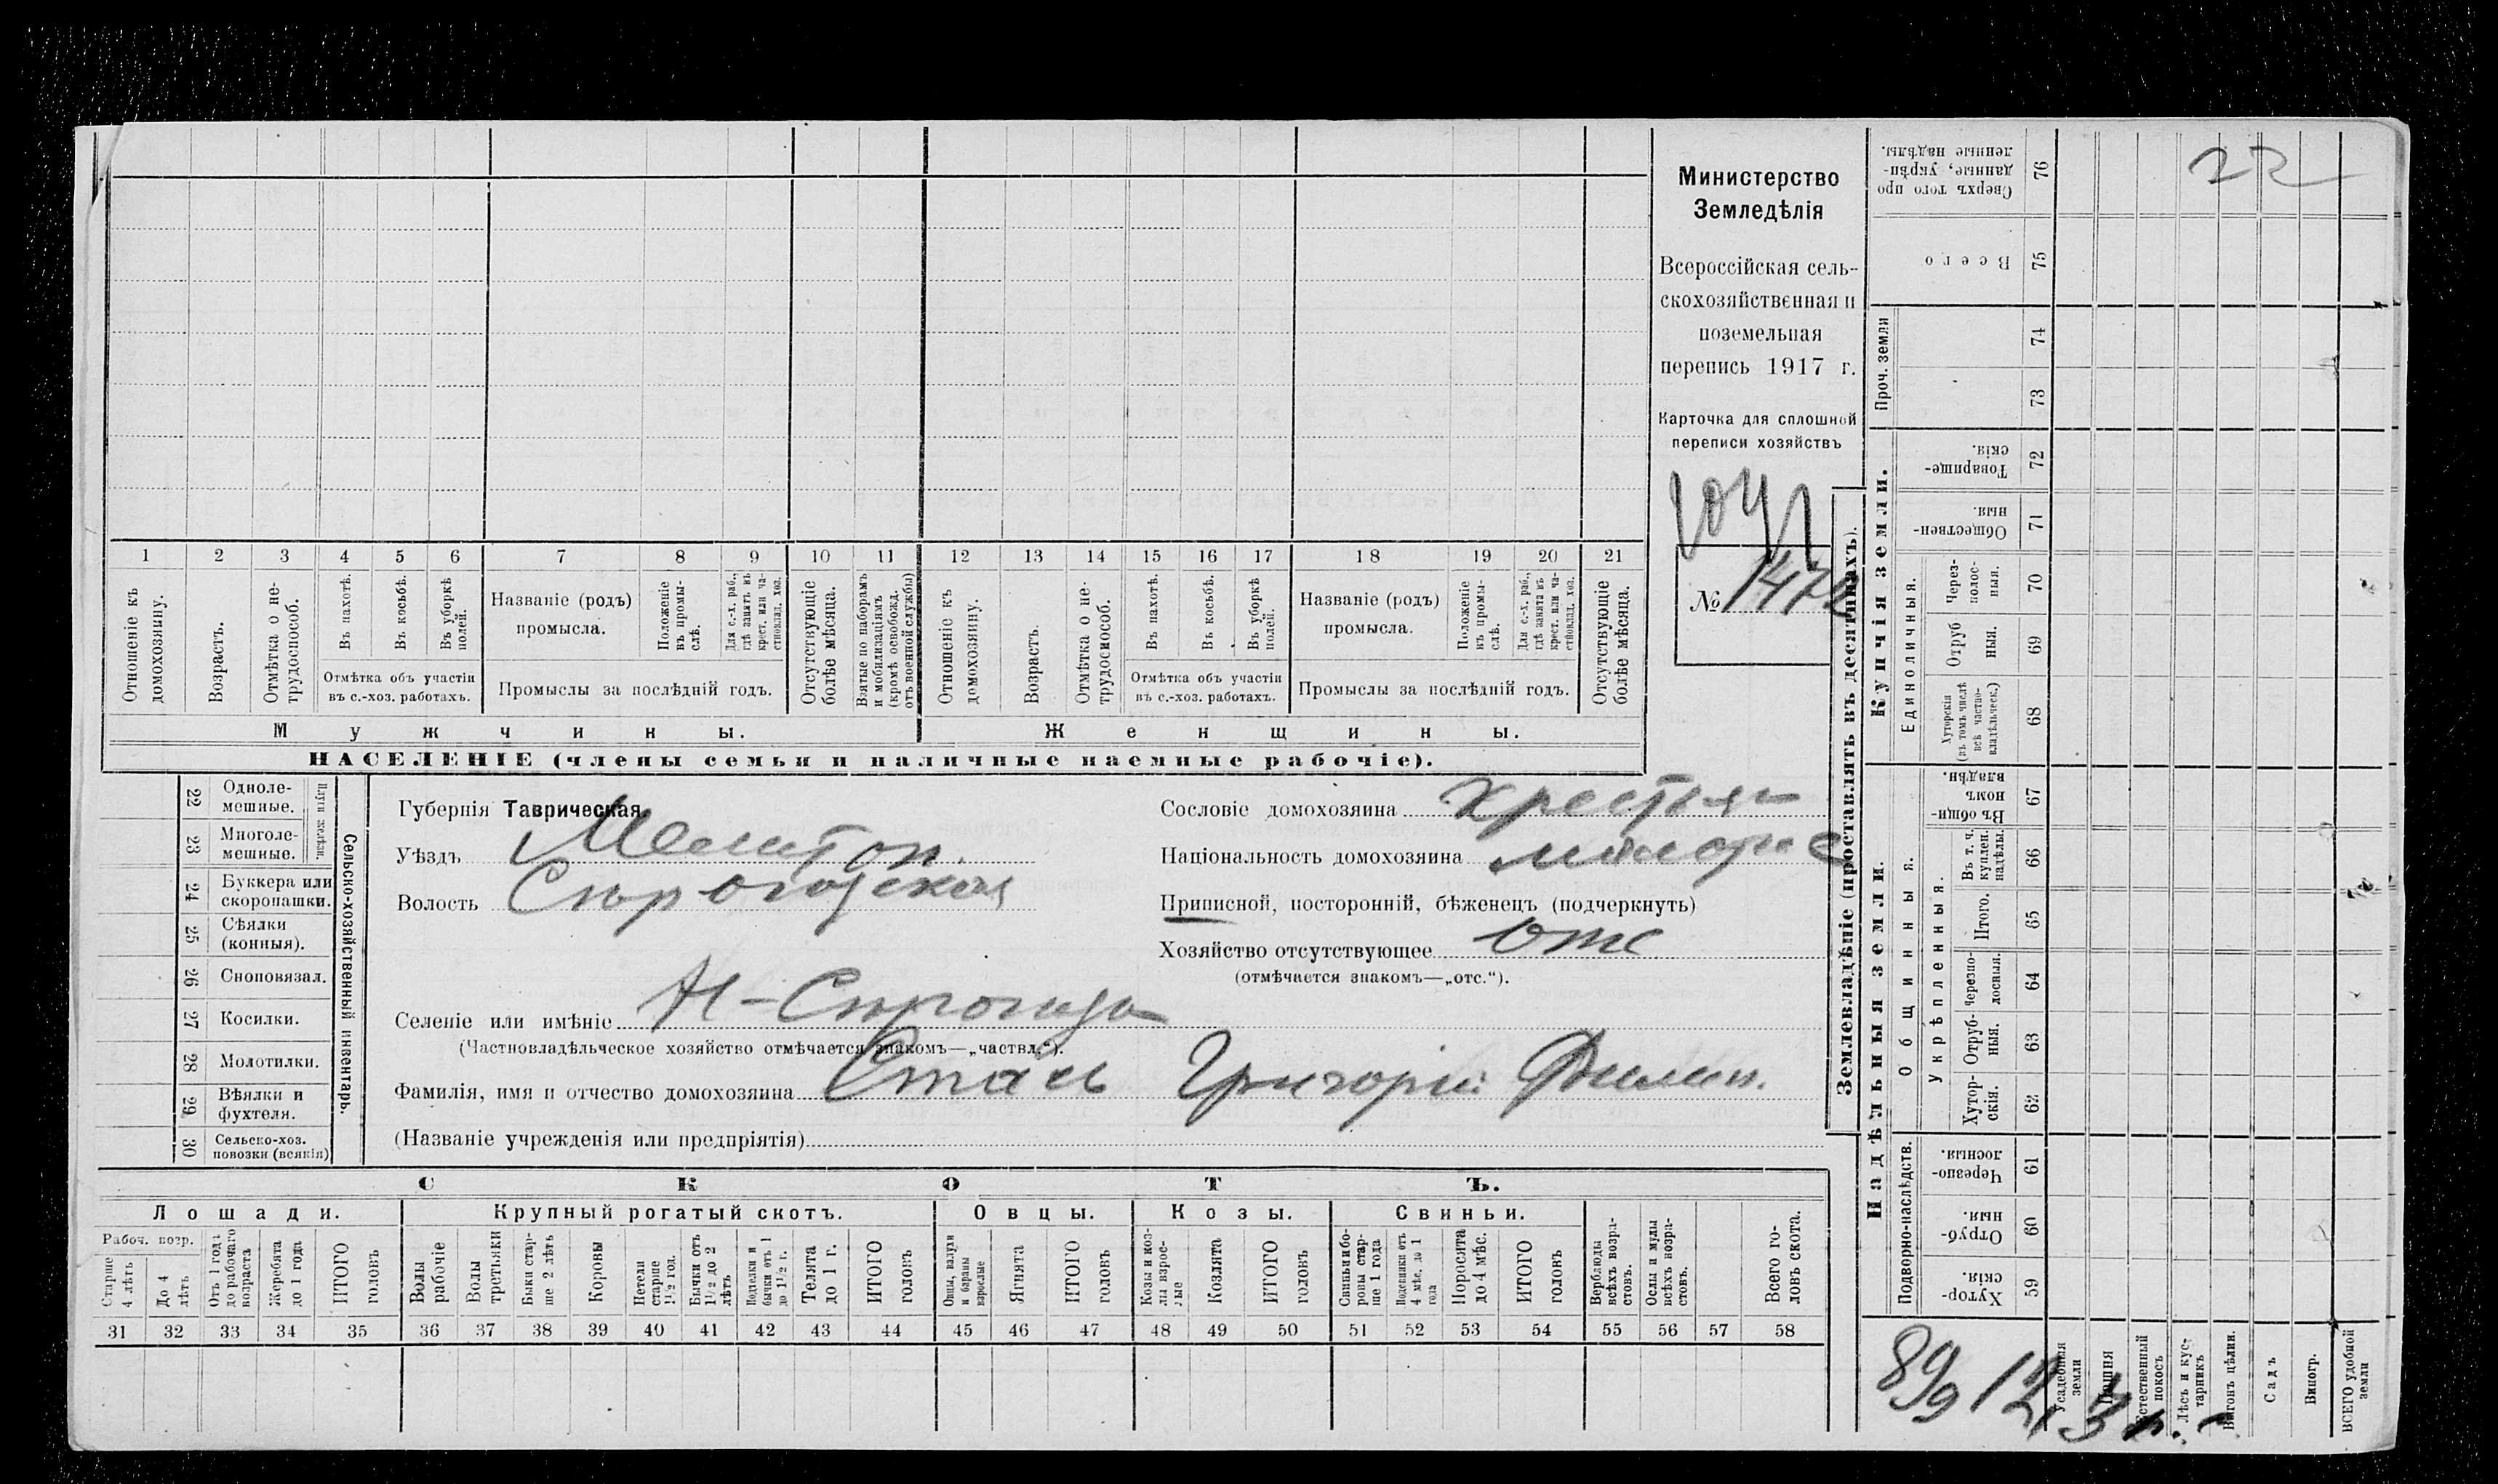 Министерство
Земледѣлія
Всероссійская сель-
скохозяйственная и
поземельная
перепись 1917 г.
Карточка для сплошной
переписи хозяйствъ
№ 1472
1 2 3 4 5 6 7 8 9 10 11 12 13 14 15 16 17 18 19 20 21
Отношеніе къ домохозяину.
Возрастъ.
Отмѣтка о не-трудоспособ.
Въ пахотѣ.
Въ косьбѣ.
Въ уборкѣ полей.
Отмѣтка объ участіи
въ с.-хоз. работахъ.
Названіе (родъ)
промысла.
Положеніе въ промы-слѣ.
Для с.-х. раб., гдѣ занятъ въ крест. или ча-стновлад. хоз.
Промыслы за послѣдній годъ.
Отсутствующіе болѣе мѣсяца.
Взятые по наборамъ и мобилизаціямъ (кромѣ освобожд. отъ военной службы)
Отношеніе къ домохозяину.
Возрастъ.
Отмѣтка о не-трудоспособ.
Въ пахотѣ.
Въ косьбѣ.
Въ уборкѣ полей.
Отмѣтка объ участіи
въ с.-хоз. работахъ.
Названіе (родъ)
промысла.
Положеніе въ промы-слѣ.
Для с.-х. раб., гдѣ занята въ крест. или ча-стновлад. хоз.
Промыслы за послѣдній годъ.
Отсутствующіе болѣе мѣсяца.
Мужчины.
Женщины.
НАСЕЛЕНІЕ (члены семьи и наличные наемные рабочіе).
Сельско-хозяйственный инвентарь.
Плуги желѣзн.
22 Одноле-
мешные.
23 Многоле-
мешные.
24 Буккера или
скоропашки.
25 Сѣялки
(конныя).
26 Сноповязал.
27 Косилки.
28 Молотилки.
29 Вѣялки и
фухтеля.
30 Сельско-хоз.
повозки (всякія)
Губернія Таврическая
Уѣздъ Мелитоп.
Волость Сѣрогозская
Селеніе или имѣніе Н-Сѣрогозы
(Частновладѣльческое хозяйство отмѣчается знакомъ—„частвл.“).
Фамилія, имя и отчество домохозяина Стась Григорій Филип.
(Названіе учрежденія или предпріятія)
Сословіе домохозяина крестьян
Національность домохозяина малорос
Приписной, посторонній, бѣженецъ (подчеркнуть)
Хозяйство отсутствующее отс
(отмѣчается знакомъ—„отс.“).
СКОТЪ.
Лошади.
Крупный рогатый скотъ.
Овцы.
Козы.
Свиньи.
Рабоч. возр.
Старше 4 лѣтъ
До 4 лѣтъ
Отъ 1 года до рабочаго возраста
Жеребята до 1 года
ИТОГО головъ
Волы рабочіе
Волы третьяки
Быки стар-ше 2 лѣтъ
Коровы
Нетели старше 1½ год.
Бычки отъ 1½ до 2 лѣтъ
Подтелки и бычки отъ 1 до 1½ г.
Телята до 1 г.
ИТОГО головъ
Овцы, валухи и бараны взрослые
Ягнята
ИТОГО головъ
Козы и коз-лы взрос-лые
Козлята
ИТОГО головъ
Свиньи и бо-ровы стар-ше 1 года
Подсвинки отъ 4 мѣс. до 1 года
Поросята до 4 мѣс.
ИТОГО головъ
Верблюды всѣхъ возра-стовъ.
Ослы и мулы всѣхъ возра-стовъ.
Всего го-ловъ скота.
31 32 33 34 35 36 37 38 39 40 41 42 43 44 45 46 47 48 49 50 51 52 53 54 55 56 57 58
Землевладѣніе (проставлять въ десятинахъ).
Надѣльныя земли.
Купчія земли.
Проч. земли
Подворно-наслѣдств.
Общинныя.
Укрѣпленныя.
Единоличныя.
Сверхъ того про
данные, укрѣп-
ленные надѣлы. 76
22
Всего 75
74
73
Товарище-
скія. 72
Обществен-
ныя. 71
Через-
полос-
ныя. 70
Отруб
ныя. 69
Хуторскія
(въ томъ числѣ
всѣ частно-
владѣльческ.) 68
Въ общи-
номъ
владѣн. 67
Въ т. ч.
куплен.
надѣлы. 66
Итого. 65
Черезпо-
лосныя. 64
Отруб-
ныя. 63
Хутор-
скія. 62
Черезпо-
лосныя. 61
Отруб-
ныя. 60
Хутор-
скія. 59
Усадебныя земли
Пашня
Естественный покосъ
Лѣсъ и кус-тарникъ
Выгонъ цѣлин.
Садъ
Виногр.
ВСЕГО удобной земли